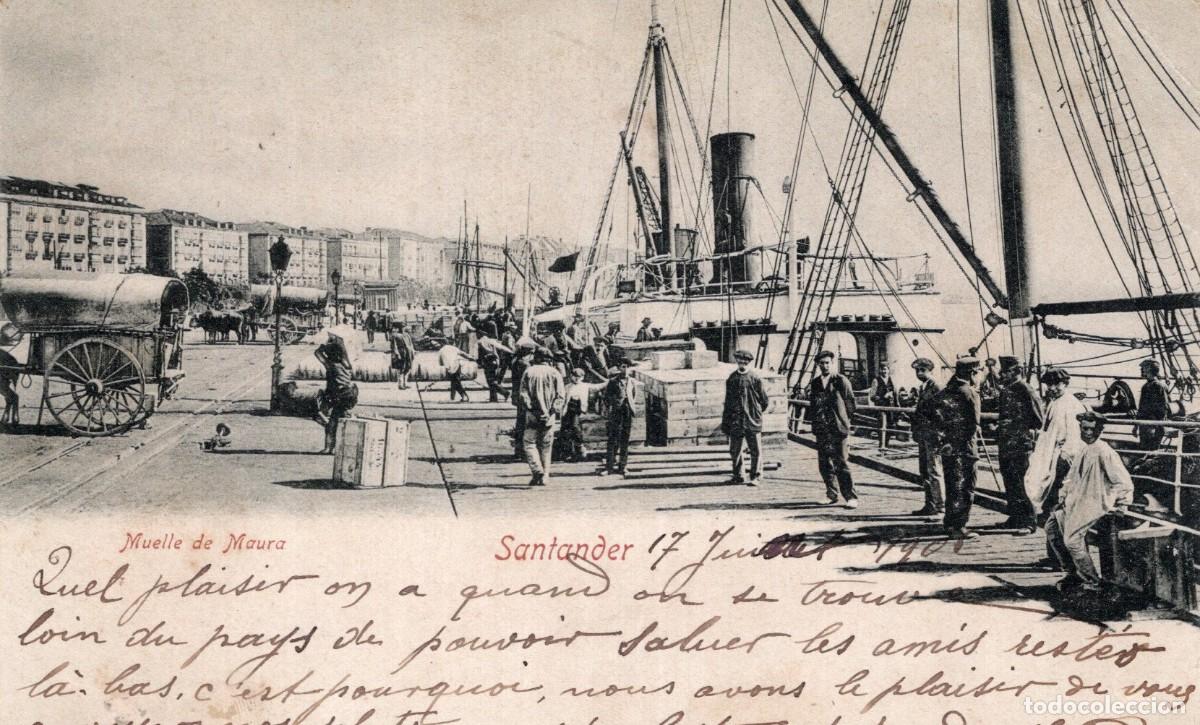 Muelle de Maura
Santander 17 Juillet
Quel plaisir on a quand on se trouve
loin du pays de pouvoir saluer les amis restés
là-bas, c'est pourquoi, nous avons le plaisir de vous
todocoleccion